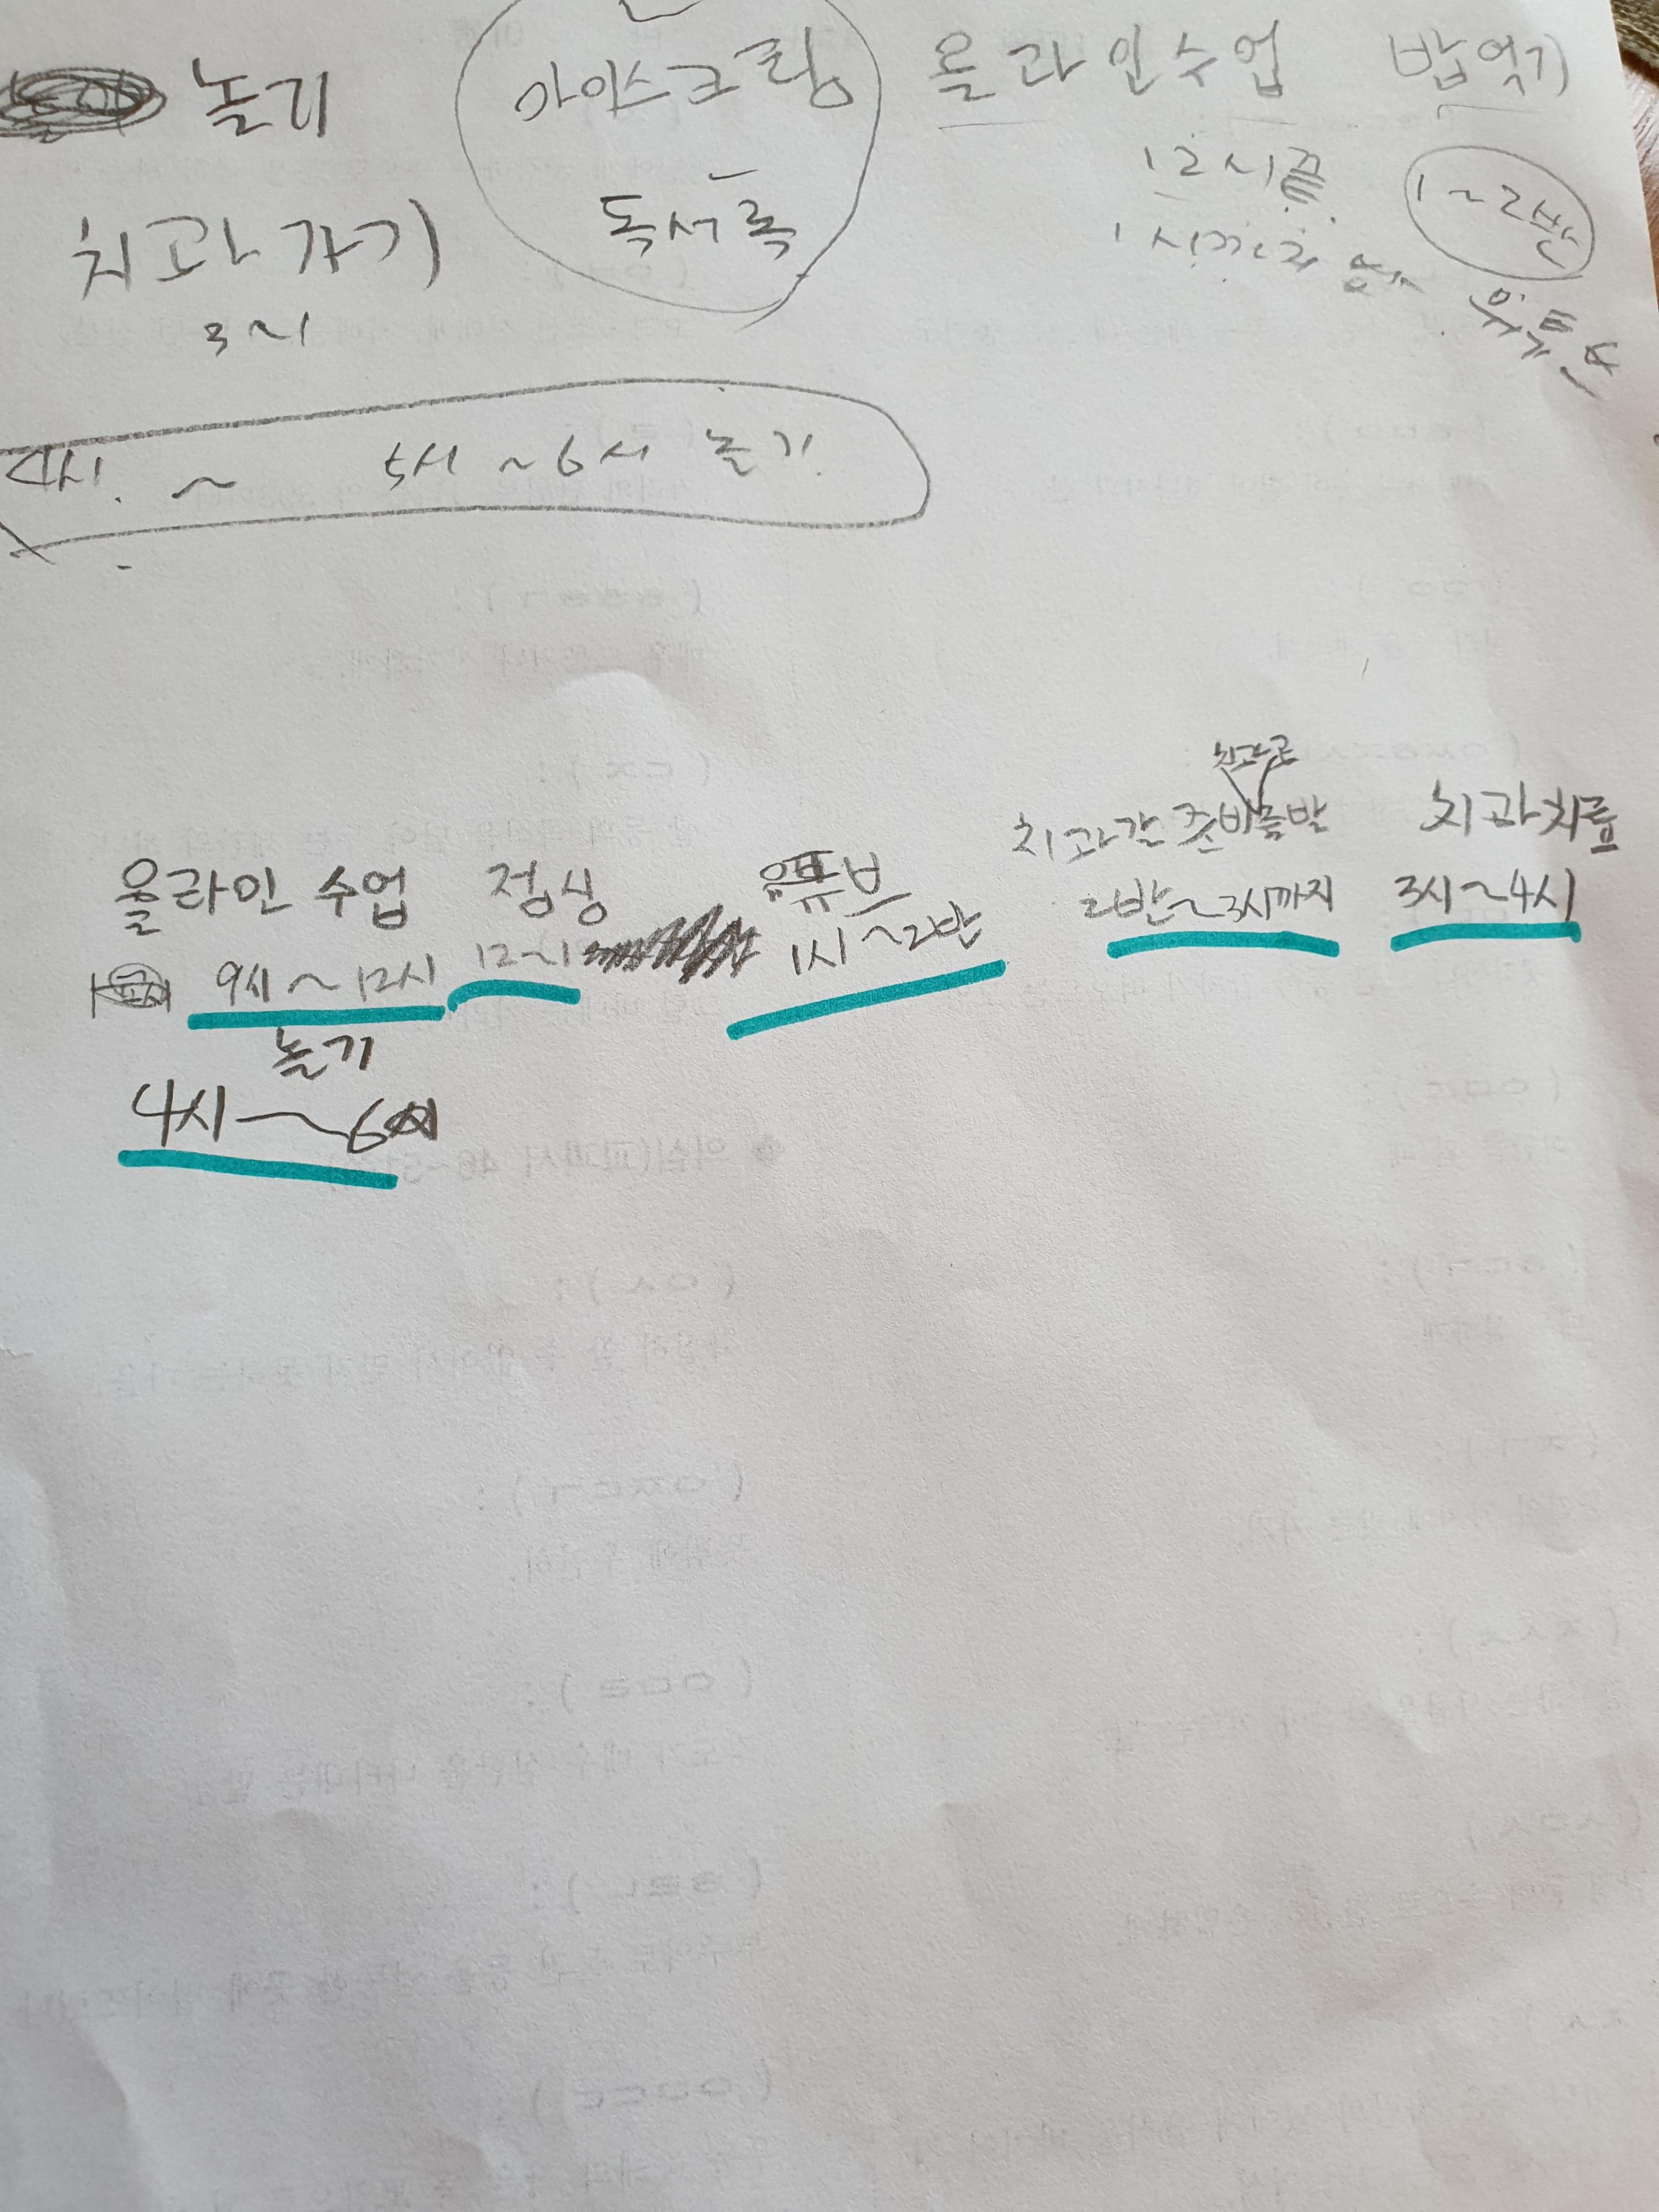 놀기 아이스크림 올라인수업 밥먹기
치과가기 독서록 12시끝 1~2반
3시 1시까지 유튜브
4시. ~ 5시~6시 놀기
치과로
올라인 수업 점심 유튜브 치과갈 준비출발 치과치료
9시~12시 12~1 1시~2반 2반~3시까지 3시~4시
놀기
4시~6시